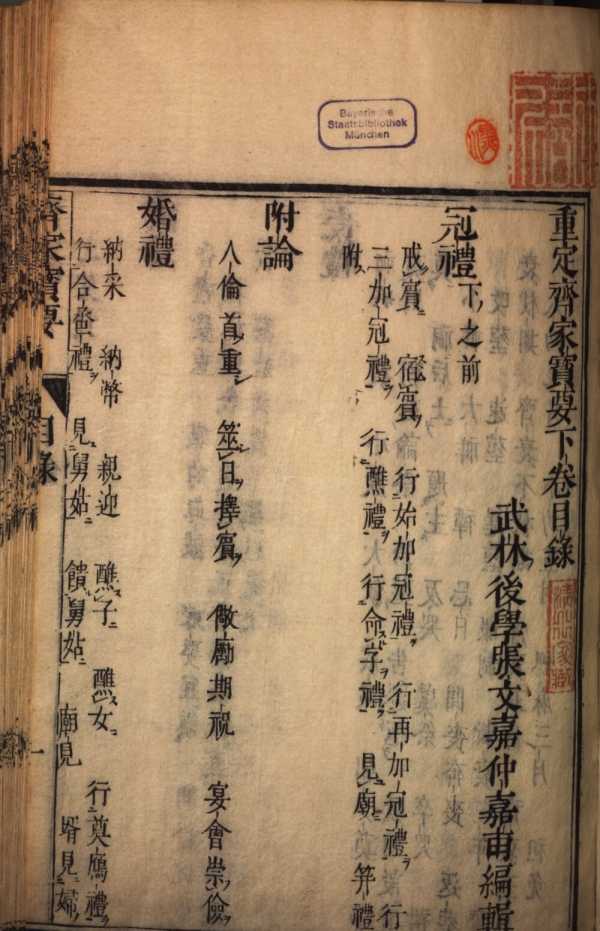 Bayerische
Staatsbibliothek
München
重定齊家寶要下卷目錄
武林後學張文嘉仲嘉甫編輯
冠禮 下之前
戒賓 宿賓 行始加冠禮 行再加冠禮 行
三加冠禮 行醮禮 行命字禮 見廟 筓禮
附
附論
人倫首重 筮日擇賓 倣廟期祝 宴會崇儉
婚禮
納采 納幣 親迎 醮子 醮女 行奠鴈禮
行合巹禮 見舅姑 饋舅姑 廟見 婿見婦
齊家寶要
目錄
一